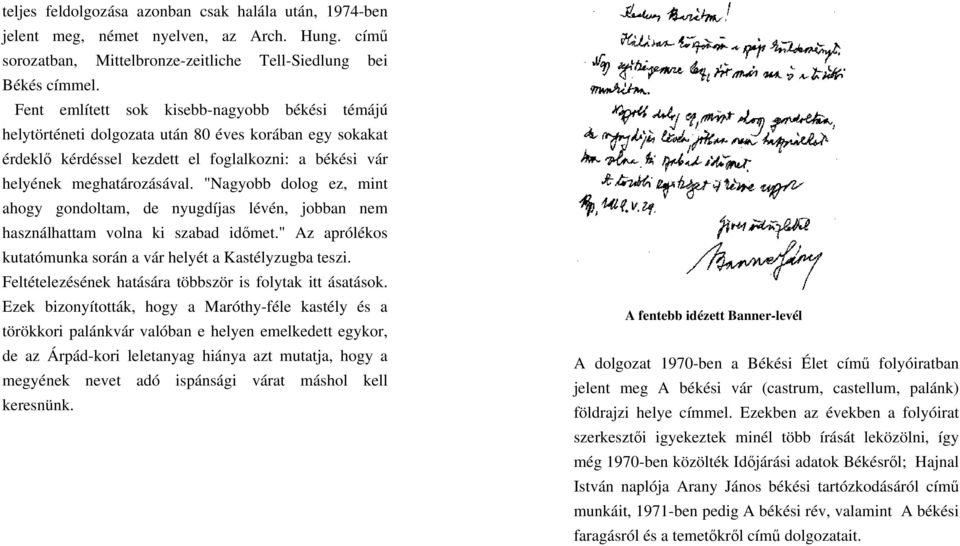 teljes feldolgozása azonban csak halála után, 1974-ben
jelent meg, német nyelven, az Arch. Hung. című
sorozatban, Mittelbronze-zeitliche Tell-Siedlung bei
Békés címmel.
Fent említett sok kisebb-nagyobb békési témájú
helytörténeti dolgozata után 80 éves korában egy sokakat
érdeklő kérdéssel kezdett el foglalkozni: a békési vár
helyének meghatározásával. "Nagyobb dolog ez, mint
ahogy gondoltam, de nyugdíjas lévén, jobban nem
használhattam volna ki szabad időmet." Az aprólékos
kutatómunka során a vár helyét a Kastélyzugba teszi.
Feltételezésének hatására többször is folytak itt ásatások.
Ezek bizonyították, hogy a Maróthy-féle kastély és a
törökkori palánkvár valóban e helyen emelkedett egykor,
de az Árpád-kori leletanyag hiánya azt mutatja, hogy a
megyének nevet adó ispánsági várat máshol kell
keresnünk.
Kedves Barátom!
Hálásan köszönöm a papi küldeményt.
Nagy segítségemre lesz, ört már sen ő a törökki
munkáitan.
Nagyobb dolog ez, mint ahogy gondoltam,
de nyugdíjas lévén, jobban nem használhattam
volna ki szabad időmet.
A további
Bp, 1969. V. 29.
Szíves üdvözlettel
Banner János
A fentebb idézett Banner-levél
A dolgozat 1970-ben a Békési Élet című folyóiratban
jelent meg A békési vár (castrum, castellum, palánk)
földrajzi helye címmel. Ezekben az években a folyóirat
szerkesztői igyekeztek minél több írását leközölni, így
még 1970-ben közölték Időjárási adatok Békésről; Hajnal
István naplója Arany János békési tartózkodásáról című
munkáit, 1971-ben pedig A békési rév, valamint A békési
faragásról és a temetőkről című dolgozatait.